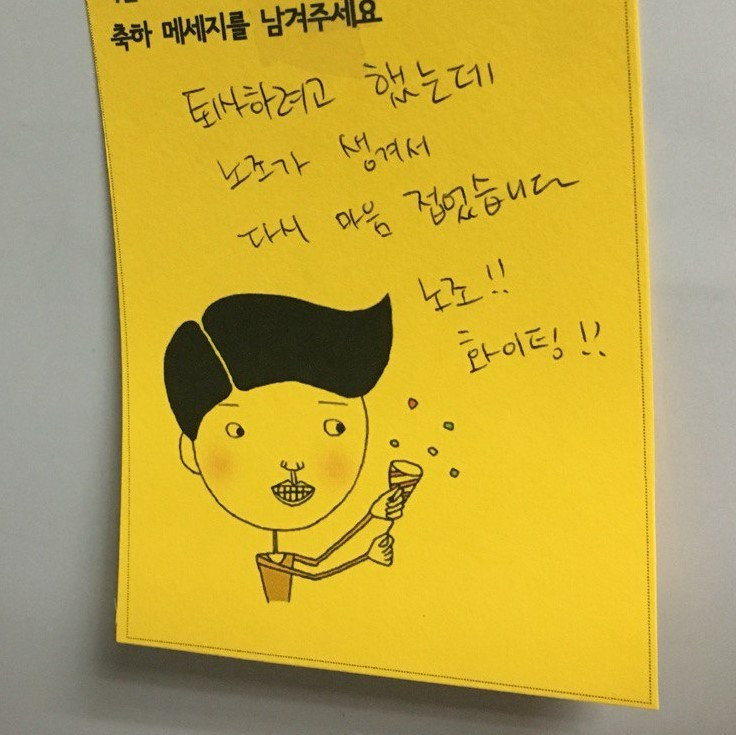 축하 메세지를 남겨주세요
퇴사하려고 했는데
노조가 생겨서
다시 마음 접었습니다
노조!!
화이팅!!